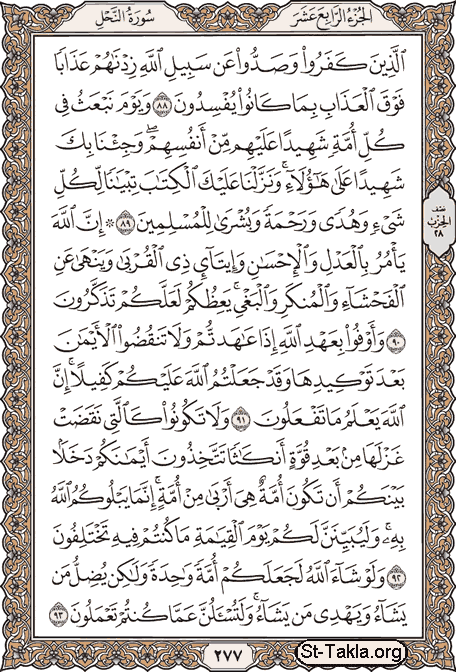 الجزء الرابع عشر
سورة النحل
الَّذِينَ كَفَرُوا وَصَدُّوا عَن سَبِيلِ اللَّهِ زِدْنَٰهُمْ عَذَابًا
فَوْقَ الْعَذَابِ بِمَا كَانُوا يُفْسِدُونَ ٨٨ وَيَوْمَ نَبْعَثُ فِي
كُلِّ أُمَّةٍ شَهِيدًا عَلَيْهِم مِّنْ أَنفُسِهِمْ ۖ وَجِئْنَا بِكَ
شَهِيدًا عَلَىٰ هَٰٓؤُلَآءِ ۚ وَنَزَّلْنَا عَلَيْكَ الْكِتَٰبَ تِبْيَٰنًا لِّكُلِّ
شَيْءٍ وَهُدًى وَرَحْمَةً وَبُشْرَىٰ لِلْمُسْلِمِينَ ٨٩ ۞ إِنَّ اللَّهَ
يَأْمُرُ بِالْعَدْلِ وَالْإِحْسَٰنِ وَإِيتَآئِ ذِي الْقُرْبَىٰ وَيَنْهَىٰ عَنِ
الْفَحْشَآءِ وَالْمُنكَرِ وَالْبَغْيِ ۚ يَعِظُكُمْ لَعَلَّكُمْ تَذَكَّرُونَ
٩٠ وَأَوْفُوا بِعَهْدِ اللَّهِ إِذَا عَٰهَدتُّمْ وَلَا تَنقُضُوا الْأَيْمَٰنَ
بَعْدَ تَوْكِيدِهَا وَقَدْ جَعَلْتُمُ اللَّهَ عَلَيْكُمْ كَفِيلًا ۚ إِنَّ
اللَّهَ يَعْلَمُ مَا تَفْعَلُونَ ٩١ وَلَا تَكُونُوا كَالَّتِي نَقَضَتْ
غَزْلَهَا مِنۢ بَعْدِ قُوَّةٍ أَنكَٰثًا تَتَّخِذُونَ أَيْمَٰنَكُمْ دَخَلًۢا
بَيْنَكُمْ أَن تَكُونَ أُمَّةٌ هِيَ أَرْبَىٰ مِنْ أُمَّةٍ ۚ إِنَّمَا يَبْلُوكُمُ اللَّهُ
بِهِۦ ۚ وَلَيُبَيِّنَنَّ لَكُمْ يَوْمَ الْقِيَٰمَةِ مَا كُنتُمْ فِيهِ تَخْتَلِفُونَ
٩٢ وَلَوْ شَآءَ اللَّهُ لَجَعَلَكُمْ أُمَّةً وَٰحِدَةً وَلَٰكِن يُضِلُّ مَن
يَشَآءُ وَيَهْدِي مَن يَشَآءُ ۚ وَلَتُسْـَٔلُنَّ عَمَّا كُنتُمْ تَعْمَلُونَ ٩٣
نصف
الحزب
٢٨
٢٧٧
St-Takla.org